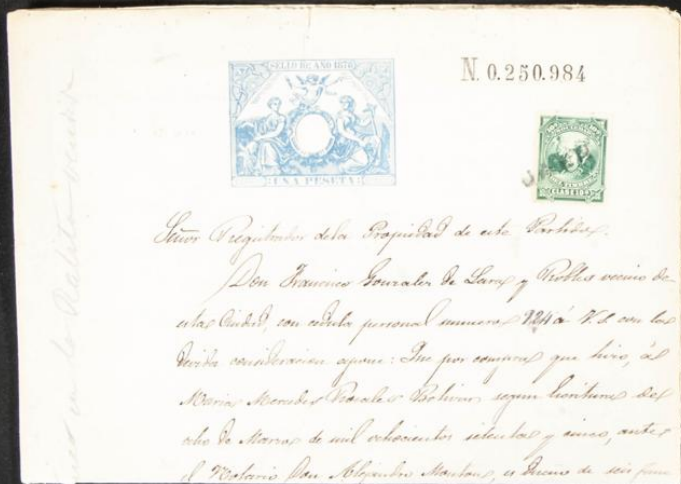 SELLO 10º AÑO 1876
UNA PESETA
N. 0.250.984
CLASE 10ª
Señor Registrador de la Propiedad de este Partido.
Don Francisco Gonzalez de Lara y Robles vecino de
esta Ciudad, con cedula personal numero 124 á V.S con la
devida consideracion espone: Que por compra que hizo, á
Maria Mercedes Rosales Bolivar segun Escritura del
ocho de Marzo de mil ochocientos setenta y cinco, ante
el Notario Don Alejandro es Dueño de seis